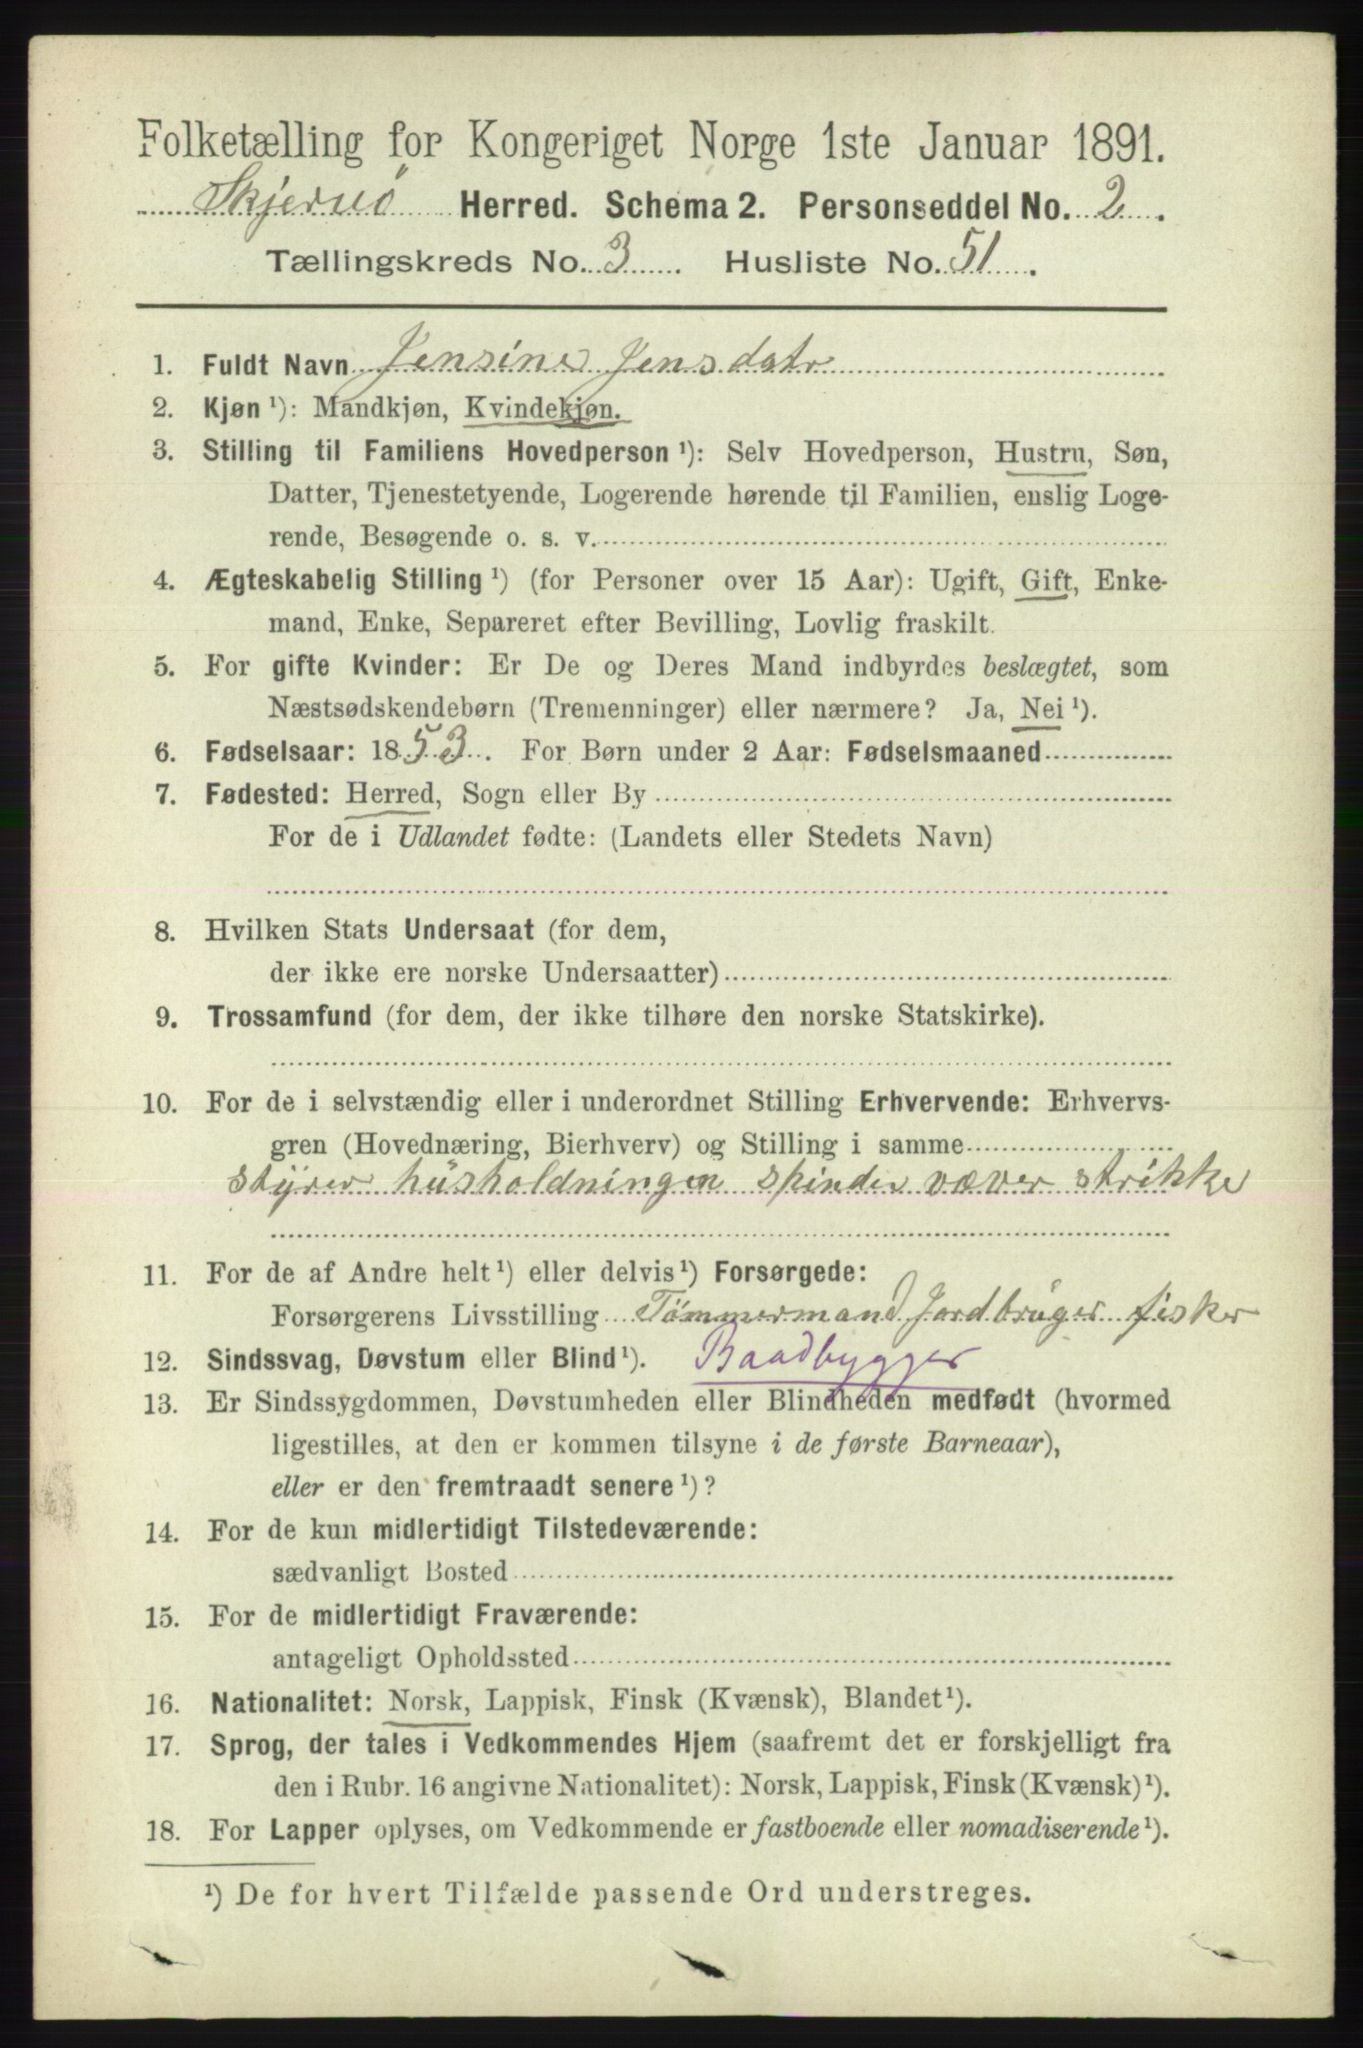 Folketælling for Kongeriget Norge 1ste Januar 1891.
Skjernø Herred. Schema 2. Personseddel No. 2.
Tællingskreds No. 3. Husliste No. 51.
1. Fuldt Navn Jensine Jensdatr
2. Kjøn ¹): Mandkjøn, Kvindekjøn.
3. Stilling til Familiens Hovedperson ¹): Selv Hovedperson, Hustru, Søn,
Datter, Tjenestetyende, Logerende hørende til Familien, enslig Loge-
rende, Besøgende o. s. v.
4. Ægteskabelig Stilling ¹) (for Personer over 15 Aar): Ugift, Gift, Enke-
mand, Enke, Separeret efter Bevilling, Lovlig fraskilt.
5. For gifte Kvinder: Er De og Deres Mand indbyrdes beslægtet, som
Næstsødskendebørn (Tremenninger) eller nærmere? Ja, Nei ¹).
6. Fødselsaar: 1853. For Børn under 2 Aar: Fødselsmaaned
7. Fødested: Herred, Sogn eller By
For de i Udlandet fødte: (Landets eller Stedets Navn)
8. Hvilken Stats Undersaat (for dem,
der ikke ere norske Undersaatter)
9. Trossamfund (for dem, der ikke tilhøre den norske Statskirke).
10. For de i selvstændig eller i underordnet Stilling Erhvervende: Erhvervs-
gren (Hovednæring, Bierhverv) og Stilling i samme
styrer husholdningen spinder væver strikke
11. For de af Andre helt ¹) eller delvis ¹) Forsørgede:
Forsørgerens Livsstilling Tømmermand Jordbruger fisker
12. Sindssvag, Døvstum eller Blind ¹). Baadbygger
13. Er Sindssygdommen, Døvstumheden eller Blindheden medfødt (hvormed
ligestilles, at den er kommen tilsyne i de første Barneaar),
eller er den fremtraadt senere ¹)?
14. For de kun midlertidigt Tilstedeværende:
sædvanligt Bosted
15. For de midlertidigt Fraværende:
antageligt Opholdssted
16. Nationalitet: Norsk, Lappisk, Finsk (Kvænsk), Blandet ¹).
17. Sprog, der tales i Vedkommendes Hjem (saafremt det er forskjelligt fra
den i Rubr. 16 angivne Nationalitet): Norsk, Lappisk, Finsk (Kvænsk) ¹).
18. For Lapper oplyses, om Vedkommende er fastboende eller nomadiserende ¹).
¹) De for hvert Tilfælde passende Ord understreges.